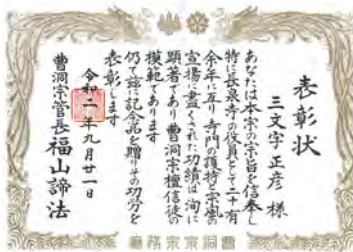 表彰状
三文字 正彦 様
あなたは本宗の宗旨を信奉し
特に長泉寺の役員として二十有
余年に亙り寺門護持と宗風の
宣揚に盡くされた功績は洵に
顕著であり曹洞宗檀信徒の
模範であります
仍て茲に記念品を贈りその功労を
表彰します
令和二年九月廿一日
曹洞宗管長 福山諦法